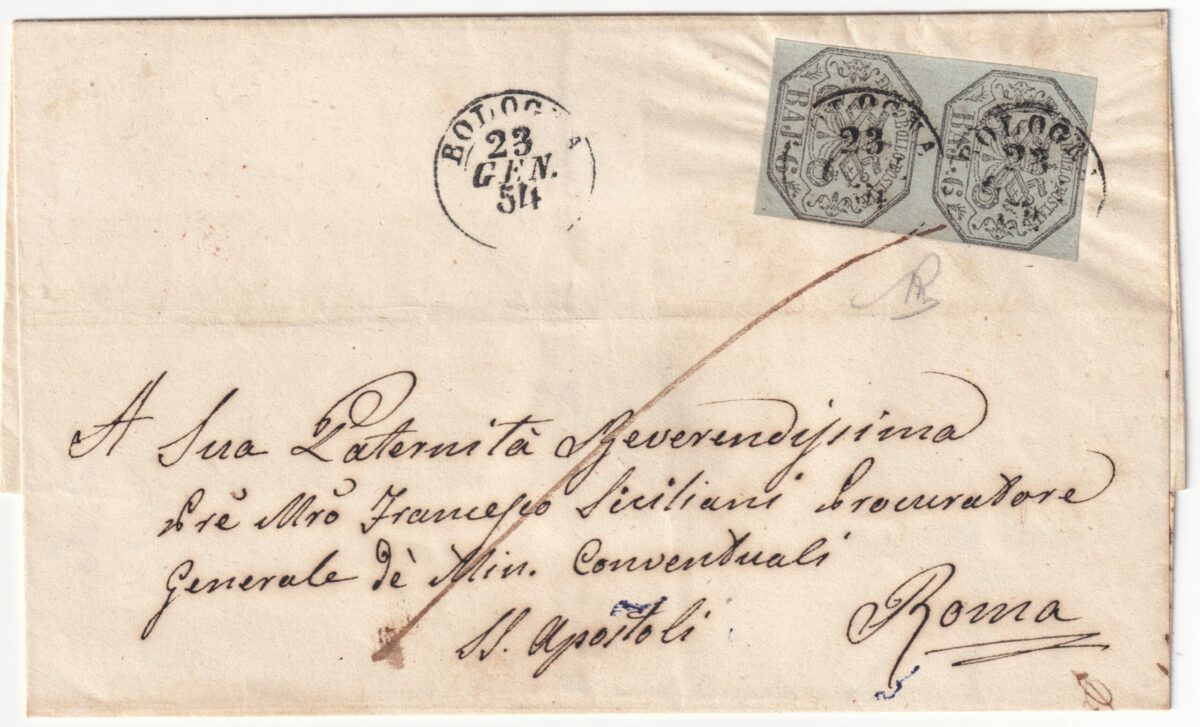 BOLOGNA
23
GEN.
54
BAJ. 6
FRANCO BOLLO POSTALE
BOLOGNA
23
54
BAJ. 6
BOLLO POSTALE
BOLOGNA
23
A Sua Paternità Reverendissima
Prẽ Mrõ Francesco Siciliani Procuratore
Generale dè Min. Conventuali
SS. Apostoli
Roma